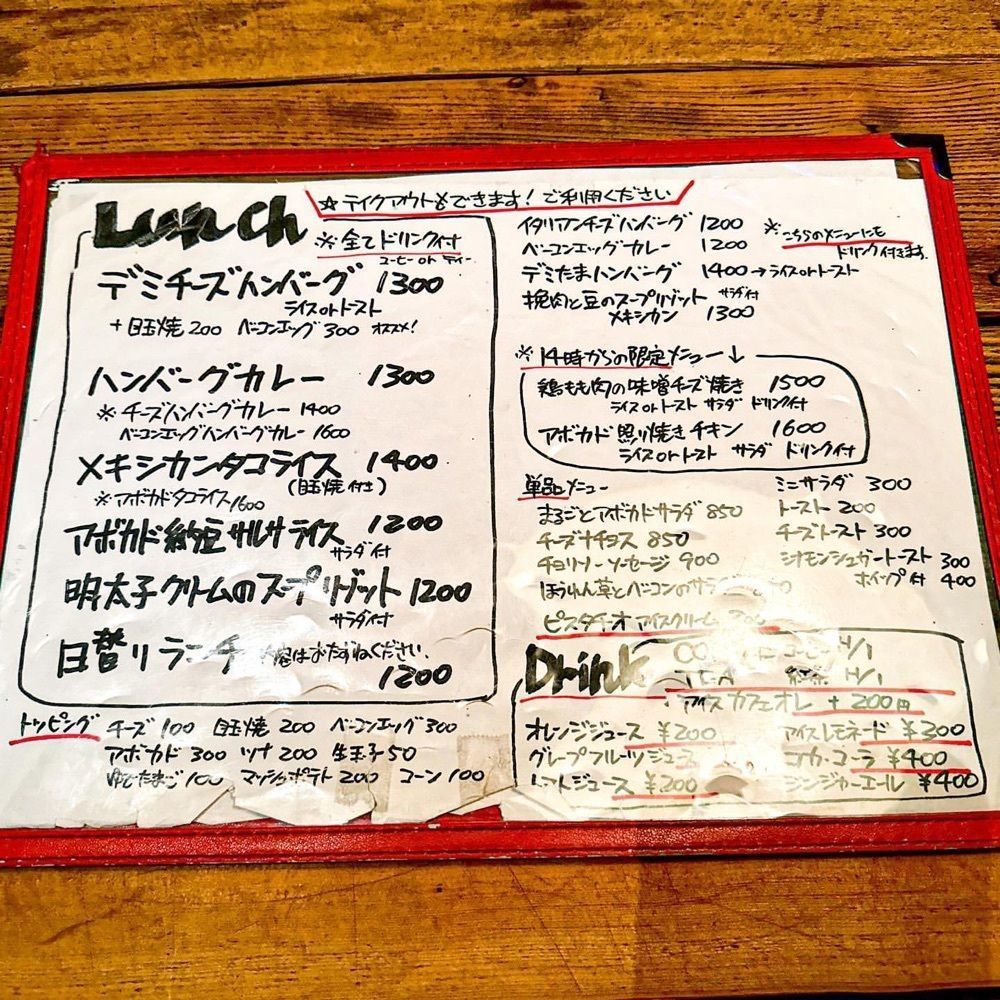 ☆テイクアウトもできます！ご利用ください
Lunch
※全てドリンク付
コーヒー or ティー
デミチーズハンバーグ 1300
ライス or トースト
+目玉焼 200 ベーコンエッグ 300 オススメ！
ハンバーグカレー 1300
※チーズハンバーグカレー 1400
ベーコンエッグハンバーグカレー 1600
メキシカンタコライス 1400
(目玉焼付き)
※アボカドタコライス 1600
アボカド納豆サルサライス 1200
サラダ付
明太子クリームのスープリゾット 1200
サラダ付
日替りランチ はおたずねください
1200
トッピング チーズ 100 目玉焼 200 ベーコンエッグ 300
アボカド 300 ツナ 200 生玉子 50
ゆでたまご 100 マッシュポテト 200 コーン 100
イタリアンチーズハンバーグ 1200
ベーコンエッグカレー 1200
※こちらのメニューにも
ドリンク付きます。
デミたまハンバーグ 1400→ライス or トースト
挽肉と豆のスープリゾット サラダ付
メキシカン 1300
※14時からの限定メニュー↓
鶏もも肉の味噌チーズ焼き 1500
ライス or トースト サラダ ドリンク付
アボカド照り焼きチキン 1600
ライス or トースト サラダ ドリンク付
単品メニュー
まるごとアボカドサラダ 850
チーズナチョス 850
チョリソーソーセージ 900
ほうれん草とベーコンのサラ
ピスタチーオアイスクリーム
ミニサラダ 300
トースト 200
チーズトースト 300
シナモンシュガートースト 300
ホイップ付 400
Drink
コーヒー H/I
紅茶 H/I
アイスカフェオレ +200円
オレンジジュース ¥200 アイスレモネード ¥300
グレープフルーツジュース コカ・コーラ ¥400
トマトジュース ¥200 ジンジャーエール ¥400